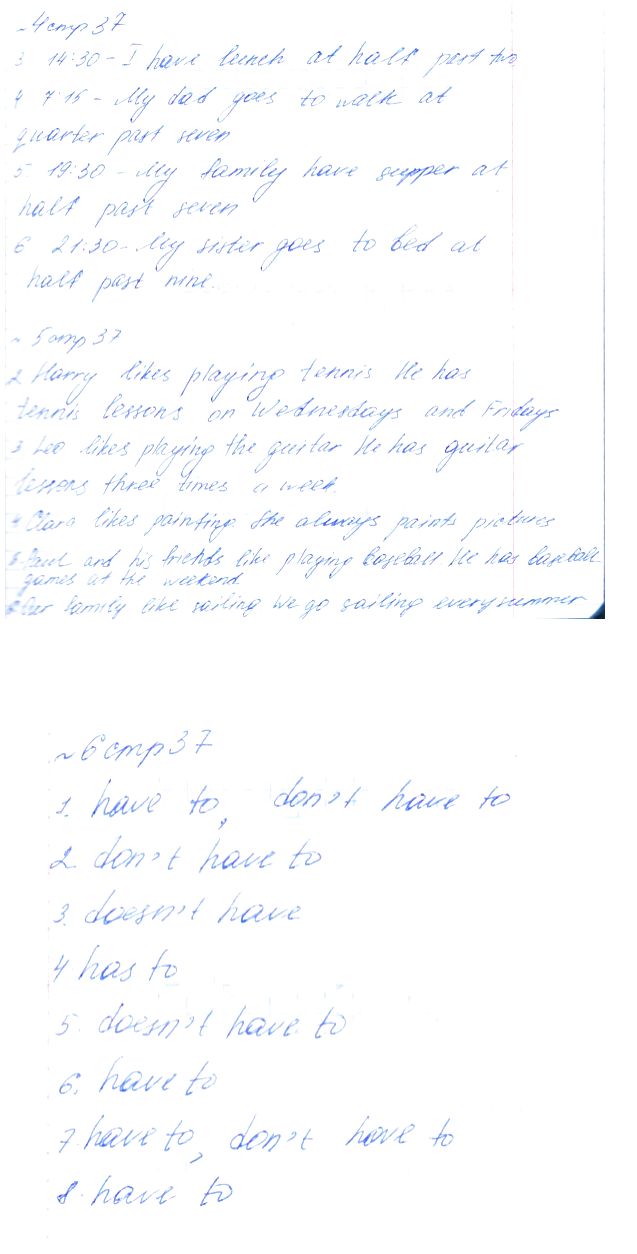 ~4стр37
3 14:30 - I have lunch at half past two
4 7:15 - My dad goes to walk at
quarter past seven
5. 19:30 - My family have supper at
half past seven
6 21:30 - My sister goes to bed at
half past nine.
~ 5стр37
2 Harry likes playing tennis He has
tennis lessons on Wednesdays and Fridays
3 Leo likes playing the guitar He has guitar
lessons three times a week.
4 Clara likes painting She always paints pictures
5 Paul and his friends like playing baseball. He has baseball
games at the weekend
6 Our family like sailing We go sailing every summer
~6стр37
1. have to, don't have to
2 don't have to
3. doesn't have
4 has to
5. doesn't have to
6. have to
7 have to, don't have to
8. have to